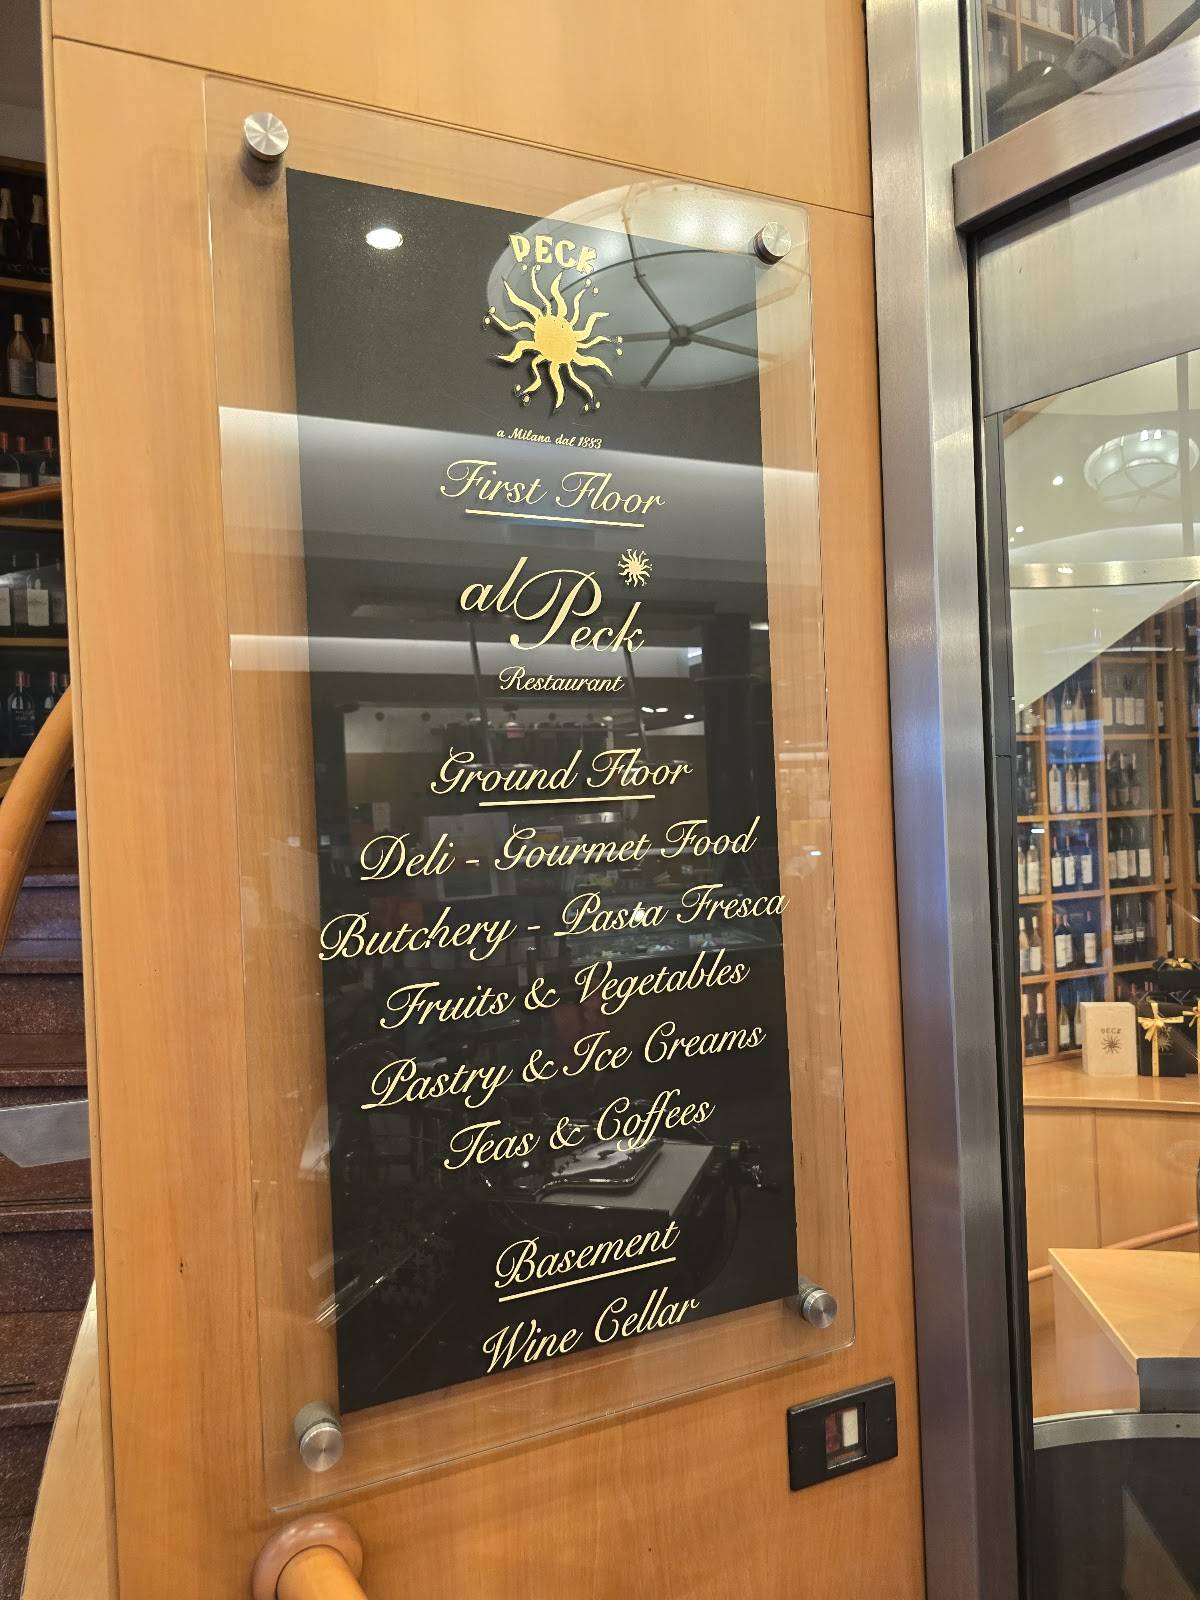 PECK
a Milano dal 1883
First Floor
al Peck
Restaurant
Ground Floor
Deli - Gourmet Food
Butchery - Pasta Fresca
Fruits & Vegetables
Pastry & Ice Creams
Teas & Coffees
Basement
Wine Cellar
PECK